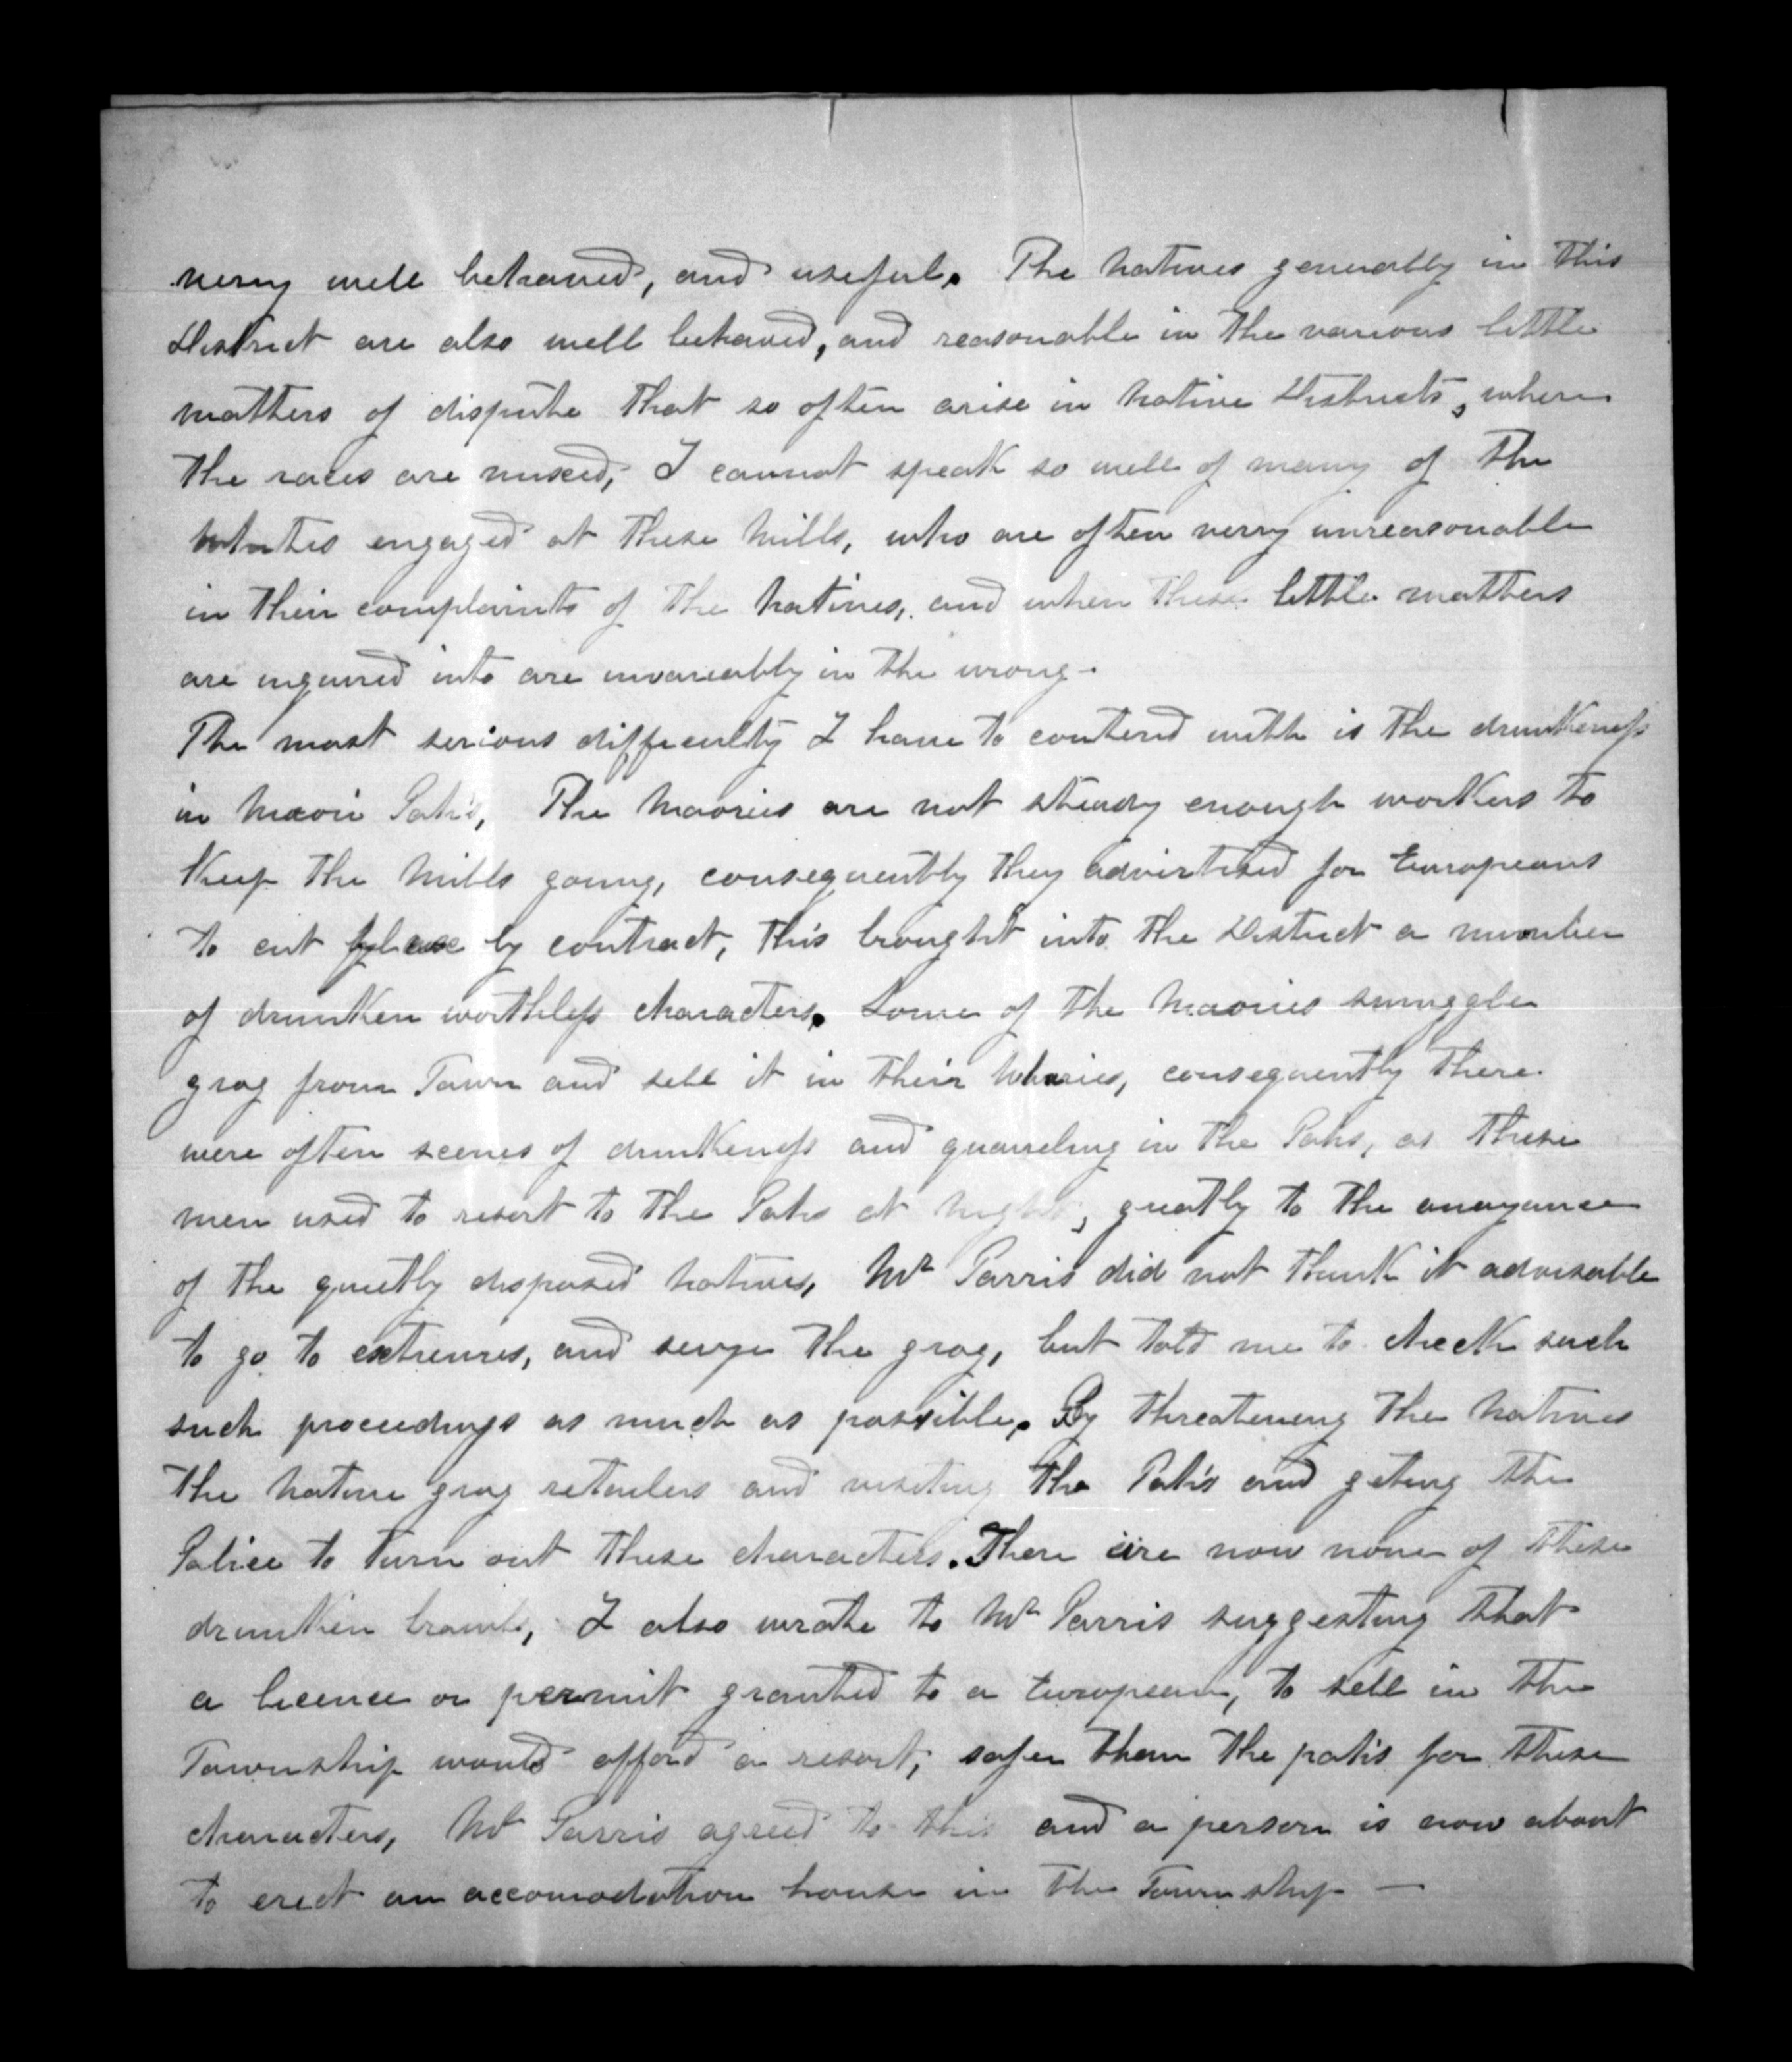 very well behaved, and useful. The Natives generally in this
District are also well behaved, and reasonable in the various little
matters of dispute that so often arise in Native Districts, where
the races are mixed, I cannot speak so well of many of the
Whites engaged at these Mills, who are often very unreasonable
in their complaints of the Natives, and when these little matters
are inquired into are invariably in the wrong -
The most serious difficulty I have to contend with is the drunkeness
in Maori Pah's, The Maories are not steady enough workers to
Keep the Mills going, consequently they advertised for Europeans
to cut by contract, this brought into the District a number
of drunken worthless characters. Some of the Maories smuggle
grog from Town and sell it in their Wharies, consequently there
were often scenes of drunkeness and quarreling in the Pahs, as these
men used to resort to the Pahs at night, greatly to the anoyance
of the quietly disposed natives, Mr Parris did not think it advisable
to go to extremes, and seize the grog, but told me to check such
such proceedings as much as possible. By threatening the Natives
the Native grog retailers and visiting the Pah's and geting the
Police to turn out these characters. There are now none of these
drunken brawls, I also wrote to Mr Parris suggesting that
a licence or permit granted to a European, to sell in the
Township would afford a resort, safer than the pah's for these
characters, Mr Parris agreed to this and a person is now about
to erect an accomodation house in the Township —